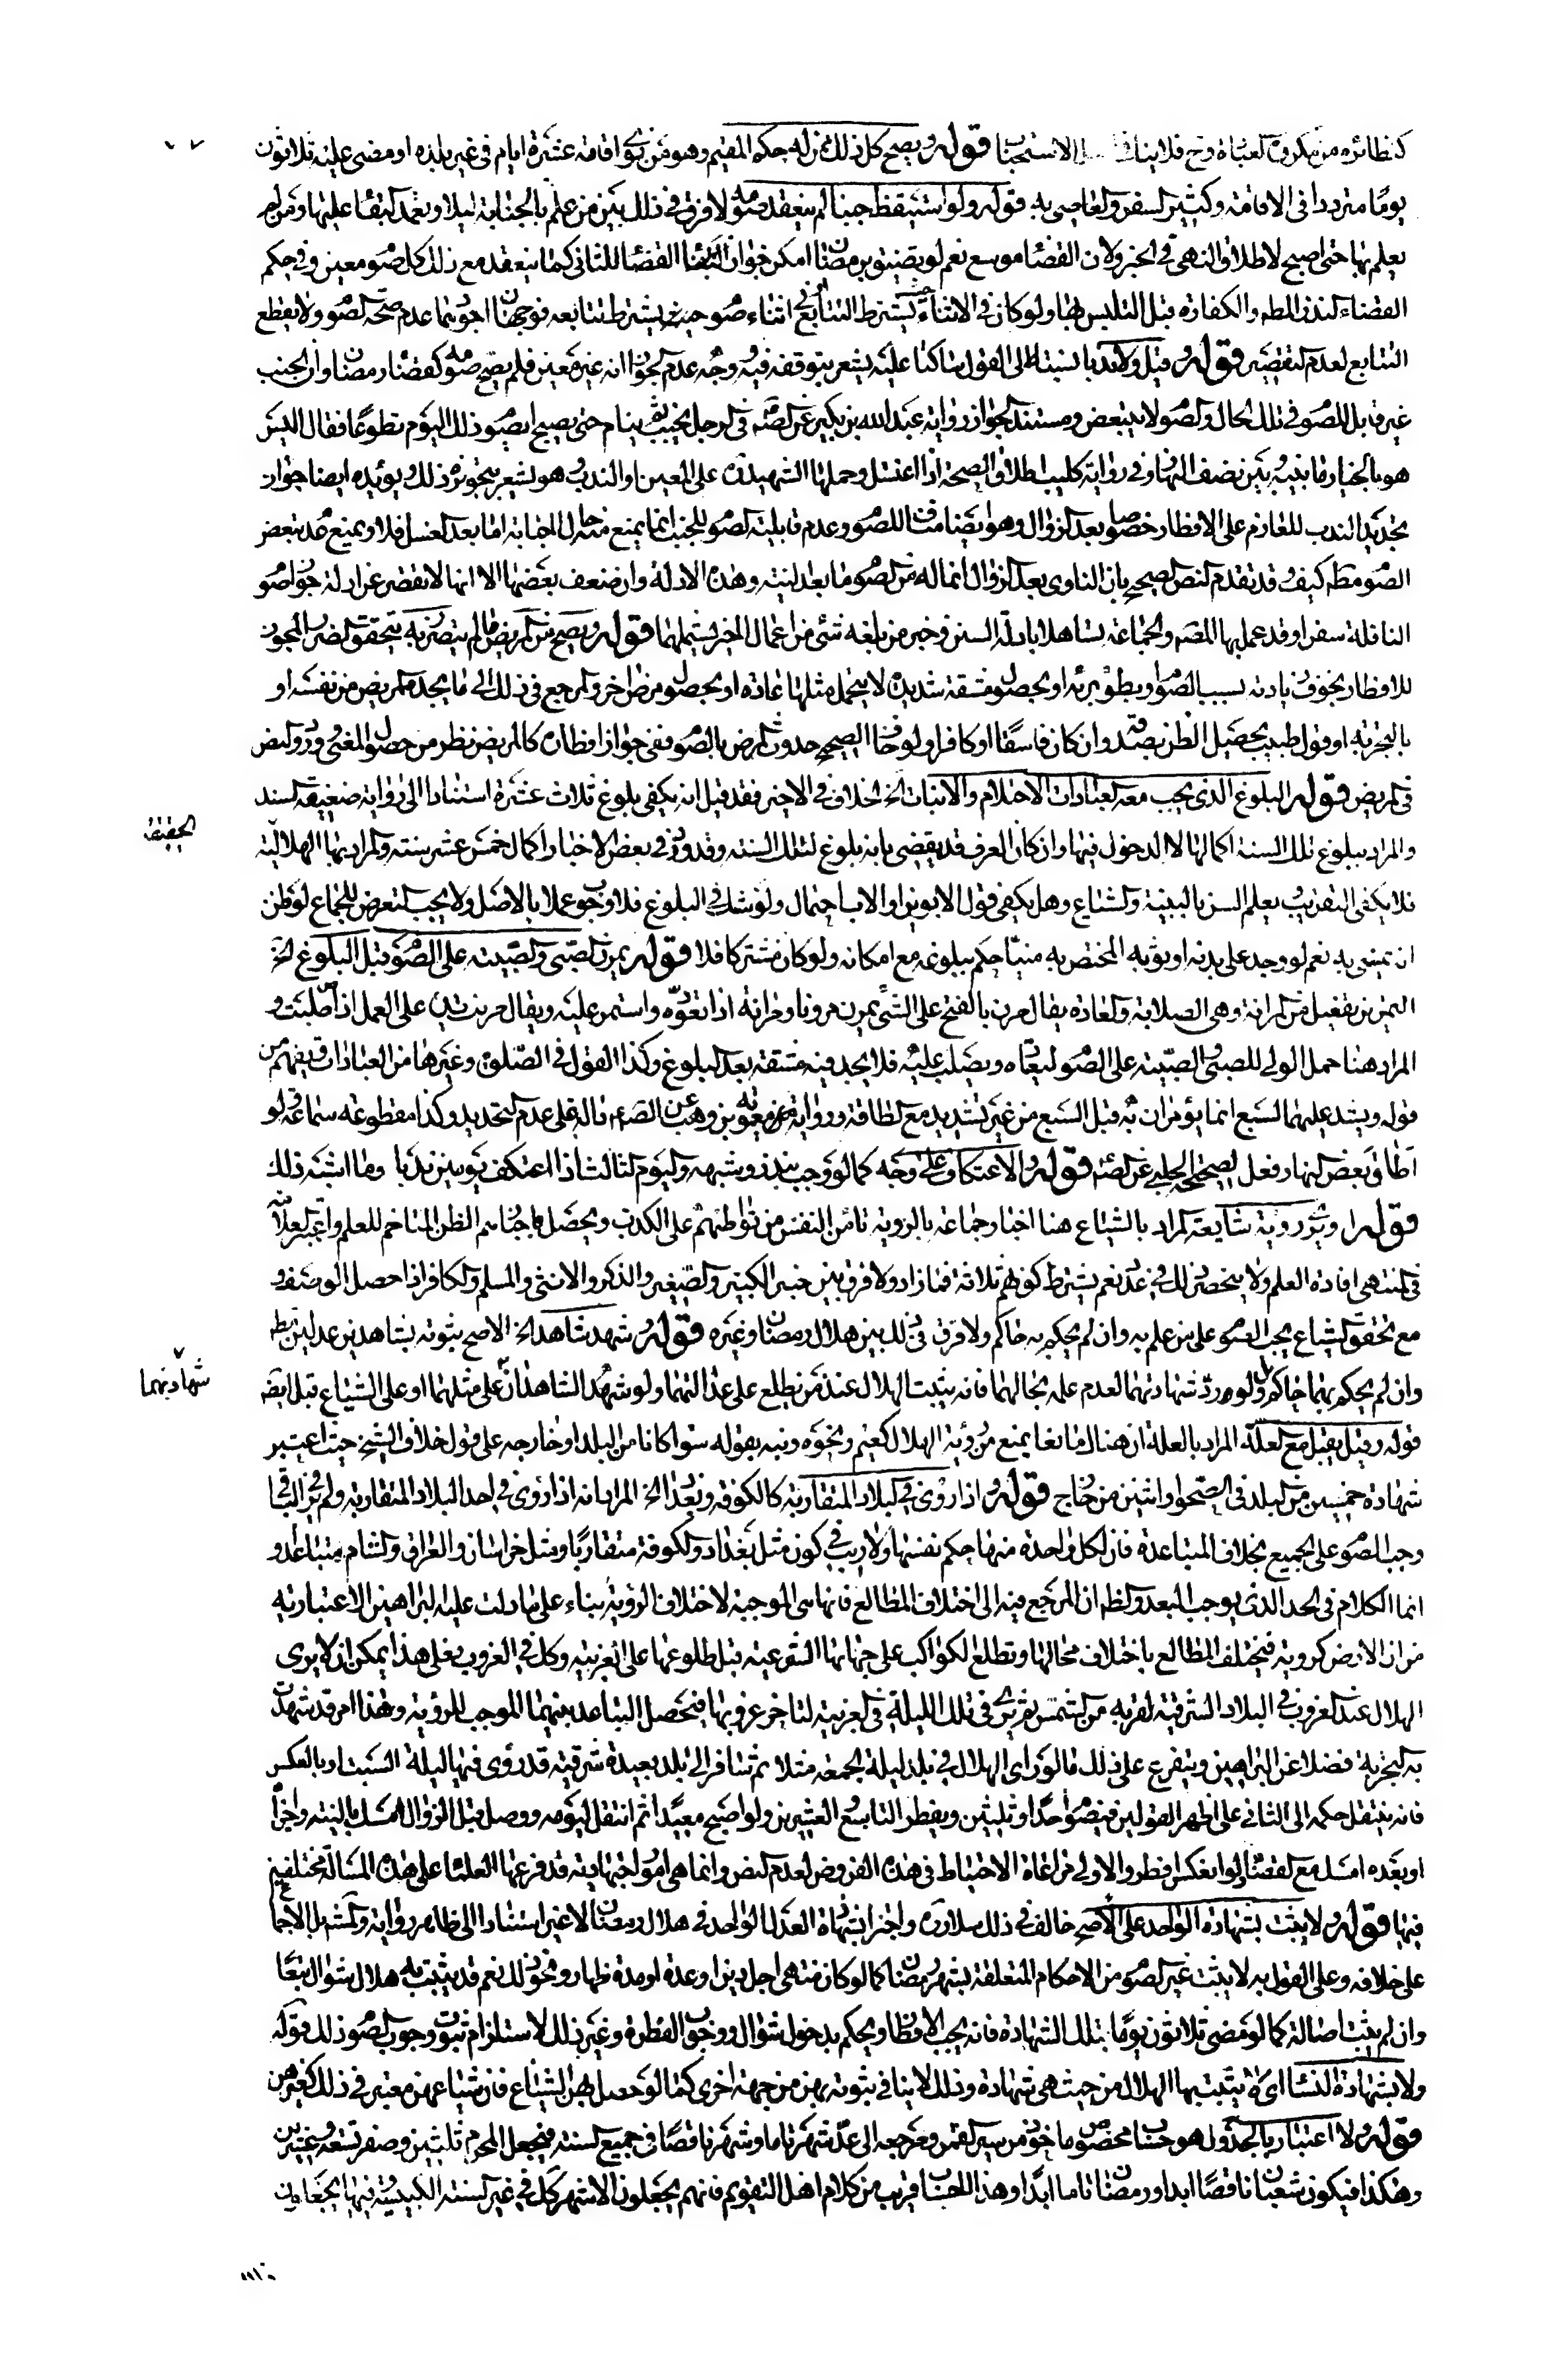 كنظائره من مكروه العبادة وح فلا ينافي الاستحباب قوله ويصح كل ذلك ممن له حكم المقيم وهو من نوى اقامة عشرة ايام في غير بلده او مضى عليه ثلاثون
يوما مترددا في الاقامة وكثير السفر والعاصي به قوله ولو استيقظ جنبا لم ينعقد صومه لا فرق في ذلك بين من علم بالجنابة ليلا وتعمد البقاء عليها ومن لم
يعلم بها حتى اصبح لاطلاق النهي في الخبر ولان القضاء موسع نعم لو تضيق برمضان امكن جواز القضاء للثاني كما ينعقد مع ذلك كل صوم معين وفي حكم
القضاء النذر المطلق والكفارة قبل التلبس بها ولو كان في الاثناء حيث يشترط التتابع او في اثناء صوم حيث يشترط تتابعه فوجهان اجودهما عدم صحة الصوم ولا يقطع
التتابع لعدم التقصير قوله وقيل ولا ندبا نسبته الى القول ساكتا عليه يشعر بتوقفه فيه وجه عدم الجواز انه غير معين فلم يصح صومه كقضاء رمضان وان الجنب
غير قابل للصوم في تلك الحال والصوم لا يتبعض ومستند الجواز رواية عبد الله بن بكير عن الصه في الرجل يجنب ثم ينام حتى يصبح ايصوم ذلك اليوم تطوعا فقال اليس
هو بالخيار ما بينه وبين نصف النهار وفي رواية كليب اطلاق الصحة اذا اغتسل وحملها الشهيد ره على المعين او الندب وهو يشعر بتجويزه ذلك ويؤيده ايضا جواز
تجديد الندب للعازم على الافطار خصوصا بعد الزوال وهو ايضا مناف للصوم وعدم قابليته الصوم للجنب انما يمنع منه حال الجنابة اما بعد الغسل فلا ويمنع عدم تبعض
الصوم مطلقا كيف وقد تقدم النص الصحيح بان الناوي بعد الزوال انما له من الصوم ما بعد النية وهذه الادلة وان ضعف بعضها الا انها لا تقصر عن ادلة جواز صوم
النافلة سفرا وقد عمل بها المصه والجماعة تساهلا بادلة السنن وخبر من بلغه شئ من اعمال الخير يشملهما قوله ويصح من المريض ما لم يتضرر به يتحقق الضرر المجوز
للافطار بخوف زيادته بسبب الصوم او بطؤ برئه او بحصول مشقة شديدة لا يتحمل مثلها عادة او بحصول مرض اخر والمرجع في ذلك الى ما يجده المريض من نفسه او
بالتجربة او قول طبيب يحصل الظن بصدقه وان كان فاسقا او كافرا ولو خاف الصحيح حدوث المرض بالصوم ففي جواز افطاره كالمريض نظر من حصول المعنى وورود النص
في المريض قوله البلوغ الذي يجب معه العبادات الاحتلام والانبات الخ الخلاف في الاخير فقد قيل انه يكفي بلوغ ثلاث عشرة استنادا الى رواية ضعيفة السند
الحقيقة
والمراد ببلوغ تلك السنة اكمالها لا الدخول فيها وان كان العرف قد يقضي بانه بلوغ لتلك السنة وقد ورد في بعض الاخبار اكمال خمس عشر سنة والمراد بها الهلالية
فلا يكفي التقريب يعلم السن بالبينة والشياع وهل يكفي قول الابوين او الاب احتمال ولو شك في البلوغ فلا وجوب عملا بالاصل ولا يجب التعرض للجماع لو ظن
ان يمني به نعم لو وجد على بدنه او ثوبه المختص به منيا حكم ببلوغه مع امكانه ولو كان مشتركا فلا قوله يمرن الصبي والصبية على الصوم قبل البلوغ الخ
التمرين تفعيل من المرانة وهي الصلابة والعادة يقال مرن بالفتح على الشئ يمرن مرونا ومرانة اذا تعوده واستمر عليه ويقال مرنت يده على العمل اذا صلبت و
المراد هنا حمل الولي للصبي والصبية على الصوم ليعتاده ويتصلب عليه فلا يجد فيه مشقة بعد البلوغ وكذا القول في الصلوة وغيرها من العبادات ويفهم من
قوله ويشدد عليهما لسبع انما يؤمران به قبل السبع من غير تشديد مع الطاقة ورواية معوية بن وهب عن الصه دالة على عدم التحديد وكذا مقطوعة سماعة ولو
اطاق بعض النهار فعل لصحيحة الحلبي عن الصه قوله والاعتكاف على وجه كما لو وجب بنذر وشبهه واليوم الثالث اذا اعتكف يومين ندبا وما اشبه ذلك
قوله او رؤي رؤية شايعة المراد بالشياع هنا اخبار جماعة بالرؤية تأمن النفس من تواطئهم على الكذب ويحصل باخبارهم الظن المتاخم للعلم واعتبر العلامة
في المنتهى افادة العلم ولا ينحصر ذلك في عدد نعم يشترط كونهم ثلاثة فما زاد ولا فرق بين خبر الكبير والصغير والذكر والانثى والمسلم والكافر اذا حصل الوصف و
مع تحقق الشياع يجب الصوم على من علم به وان لم يحكم به حاكم ولا فرق في ذلك بين هلال رمضان وغيره قوله شهد شاهد الخ الاصح ثبوته بشاهدين عدلين مطلقا
شهادتهما
وان لم يحكم بهما حاكم بل ولو رد شهادتهما لعدم علمه بحالهما فانه يثبت الهلال عند من يطلع على عدالتهما ولو شهد الشاهدان على مثلهما او على الشياع قبل ايضه
قوله وقيل يقبل مع العلة المراد بالعلة ان هناك مانعا يمنع من رؤية الهلال كغيم ونحوه ونبه بقوله سواء كانا من البلد او خارجه على قول خلاف الشيخ حيث اعتبر
شهادة خمسين من البلد في الصحو او اثنين من خارج قوله واذا رؤي في البلاد المتقاربة كالكوفة وبغداد الخ المراد انه اذا رؤي في احد البلاد المتقاربة ولم ير في الباقي
وجب الصوم على الجميع بخلاف المتباعدة فان لكل واحدة منها حكم نفسها ولا ريب في كون مثل بغداد والكوفة متقاربا ومثل خراسان والعراق والشام متباعد و
انما الكلام في الحد الذي يوجب البعد والظ ان المرجع فيه الى اختلاف المطالع فانها هي الموجبة لاختلاف الرؤية بناء على ما دلت عليه البراهين الاعتبارية
من ان الارض كروية فيختلف المطالع باختلاف محالها وتطلع الكواكب على جهاتها الشرقية قبل طلوعها على الغربية وكذا في الغروب فعلى هذا يمكن ان لا يرى
الهلال عند الغروب في البلاد الشرقية لقربه من الشمس ثم يرى في تلك الليلة في الغربية لتاخر غروبها فيحصل التباعد بينهما الموجب للرؤية وهذا امر قد شهدت
به التجربة فضلا عن البراهين ويتفرع على ذلك ما لو راى الهلال في بلد ليلة الجمعة مثلا ثم سافر الى بلد بعيدة شرقية قد رؤي فيها ليلة السبت او بالعكس
فانه ينتقل حكمه الى الثاني على اظهر القولين فيصوم احدا وثلثين ويفطر التاسع والعشرين ولو اصبح معيدا ثم انتقل ليومه ووصل قبل الزوال امسك بالنية واجزأ
او بعده امسك مع القضاء ولو انعكس افطر والاولى مراعاة الاحتياط في هذه الفروض لعدم النص وانما هي امور اجتهادية قد فرعها العلماء على هذه المسالة مختلفين
فيها قوله ولا يثبت بشهادة الواحد على الاصح خالف في ذلك سلار ره واجتزأ بشهادة العدل الواحد في هلال رمضان لا غير استنادا الى ظاهر رواية والمشهور بل الاجماع
على خلافه وعلى القول به لا يثبت غير الصوم من الاحكام المتعلقة بشهر رمضان كما لو كان منتهى اجل دين او عدة او مدة ظهار ونحو ذلك نعم قد يثبت به هلال شوال تبعا
وان لم يثبت اصالة كما لو مضى ثلاثون يوما بتلك الشهادة فانه يجب الافطار ويحكم بدخول شوال ووجوب الفطرة وغير ذلك لاستلزام ثبوت وجوب الصوم ذلك قوله
ولا بشهادة النساء اي لا يثبت بها الهلال من حيث هي شهادة وذلك لا ينافي ثبوته بهن من جهة اخرى كما لو حصل بهن الشياع فان شياعهن معتبر في ذلك كغيرهن
قوله ولا اعتبار بالجدول هو حساب مخصوص ماخوذ من سير القمر ومرجعه الى عد شهر تاما وشهر ناقصا في جميع السنة فيجعل المحرم ثلثين وصفر تسعة وعشرين
وهكذا فيكون شعبان ناقصا ابدا ورمضان تاما ابدا وهذا الحساب قريب من كلام اهل التقويم فانهم يجعلون الاشهر كل في غير السنة الكبيسة فيها يجعلون